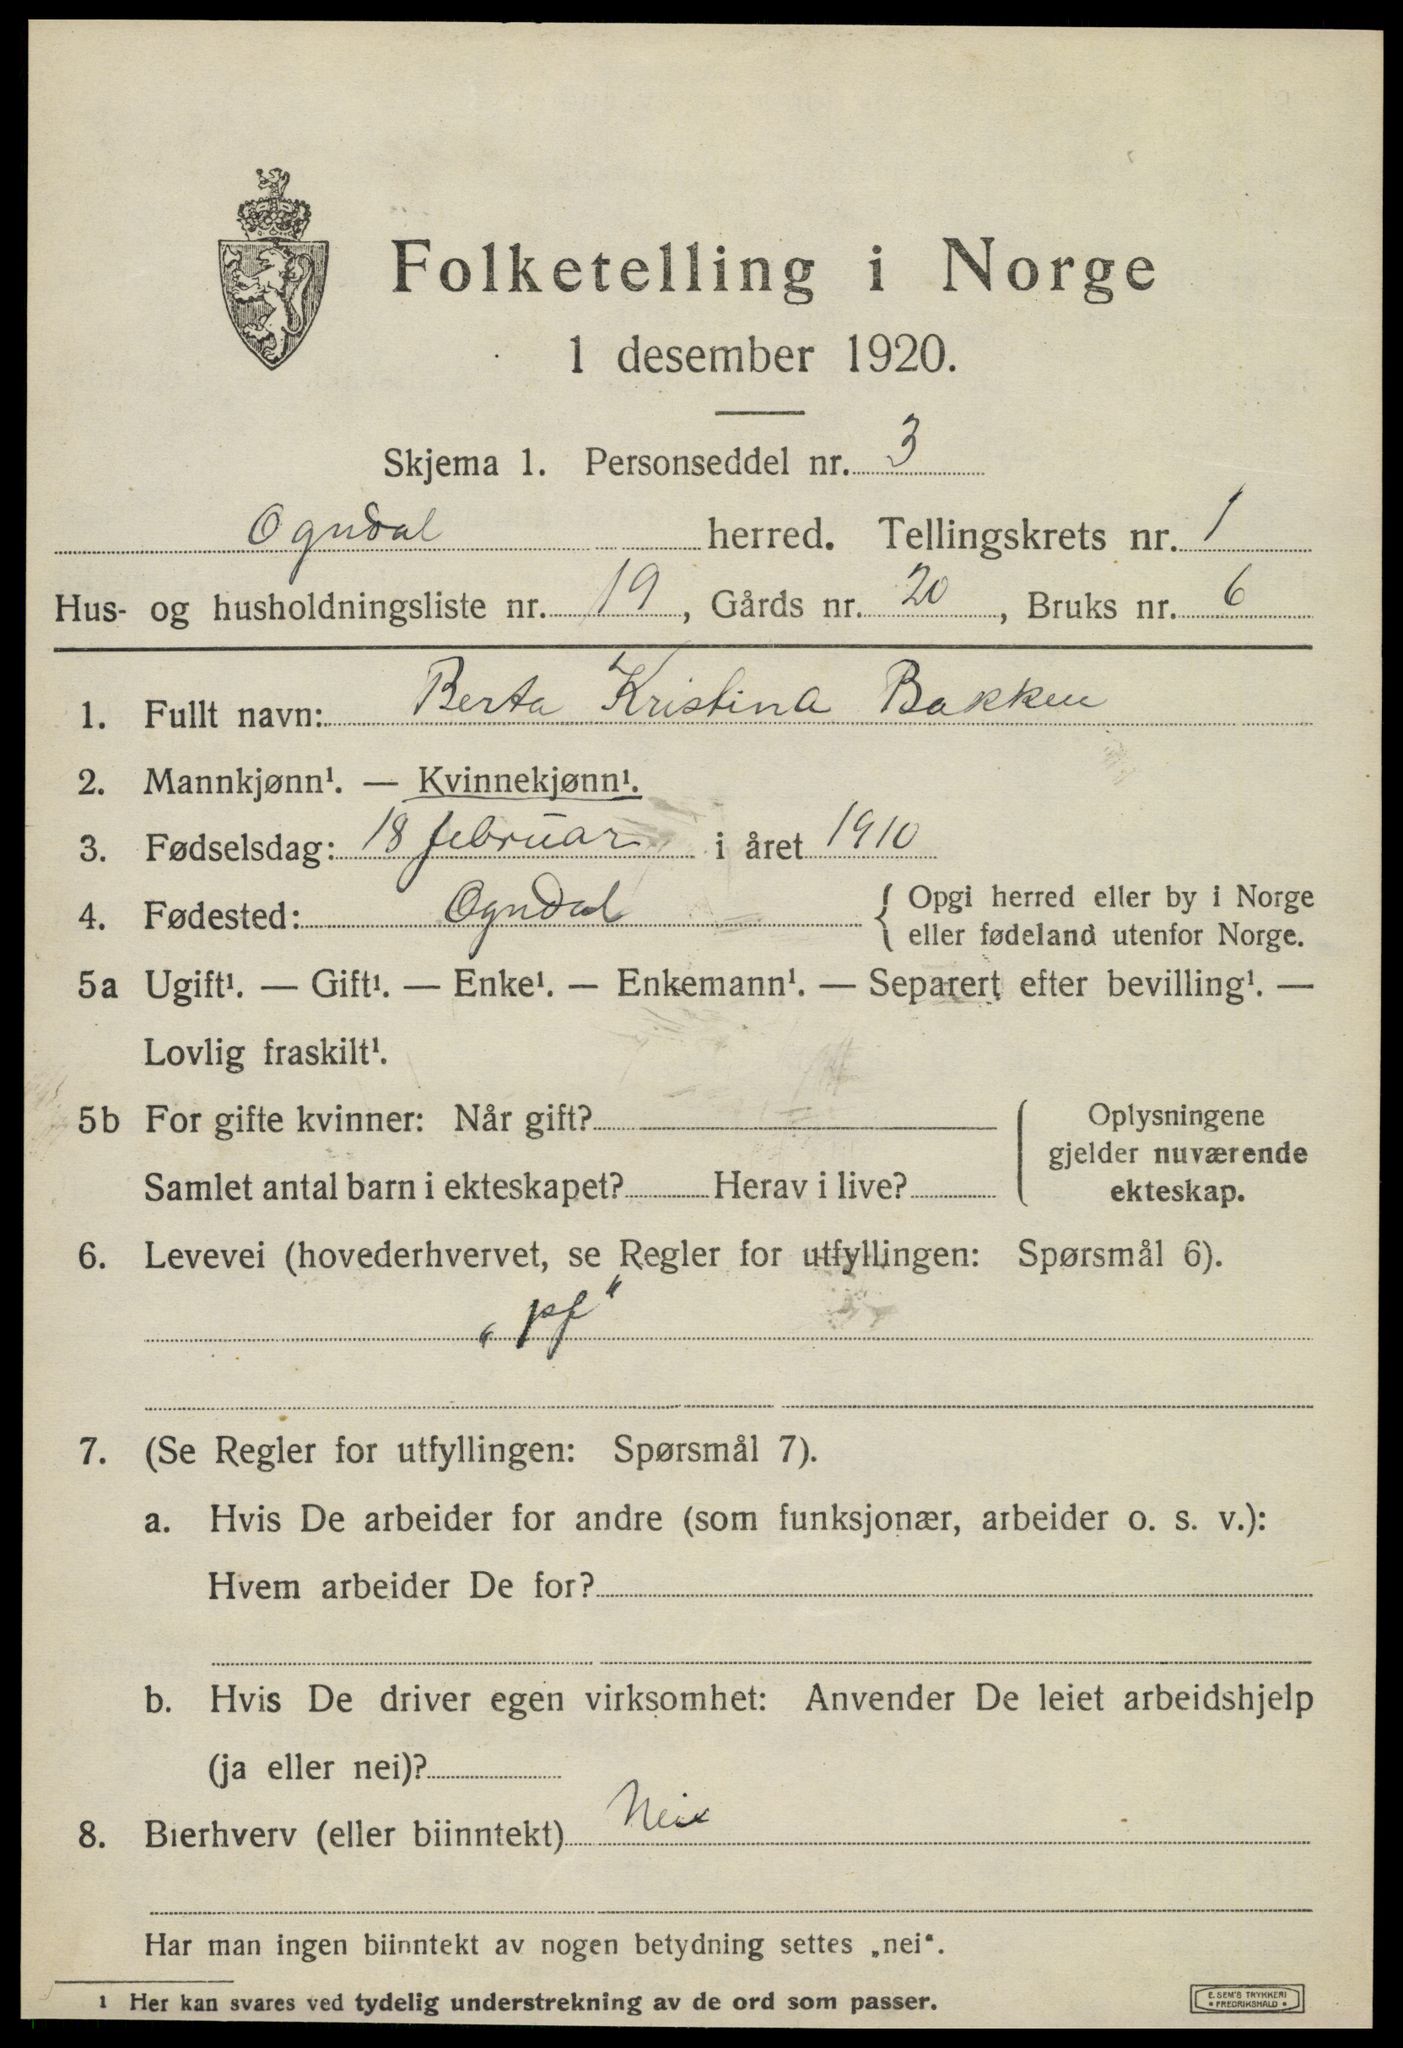 Folketelling i Norge
1 desember 1920.
Skjema 1. Personseddel nr. 3
Ogndal herred. Tellingskrets nr. 1
Hus- og husholdningsliste nr. 19, Gårds nr. 20, Bruks nr. 6
1. Fullt navn: Berta Kristina Bakken
2. Mannkjønn¹. — Kvinnekjønn¹.
3. Fødselsdag: 18 februar i året 1910
4. Fødested: Ogndal { Opgi herred eller by i Norge
eller fødeland utenfor Norge.
5a Ugift¹. — Gift¹. — Enke¹. — Enkemann¹. — Separert efter bevilling¹. —
Lovlig fraskilt¹.
5b For gifte kvinner: Når gift?
Samlet antal barn i ekteskapet? Herav i live?
Oplysningene
gjelder nuværende
ekteskap.
6. Levevei (hovederhvervet, se Regler for utfyllingen: Spørsmål 6).
„pf"
7. (Se Regler for utfyllingen: Spørsmål 7).
a. Hvis De arbeider for andre (som funksjonær, arbeider o. s. v.):
Hvem arbeider De for?
b. Hvis De driver egen virksomhet: Anvender De leiet arbeidshjelp
(ja eller nei)?
8. Bierhverv (eller biinntekt) Nei
Har man ingen biinntekt av nogen betydning settes „nei".
1 Her kan svares ved tydelig understrekning av de ord som passer.
E. SEM'S TRYKKERI
• FREDRIKSHALD •